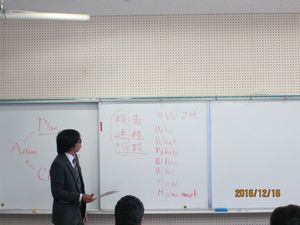 Plan
Action
C
報告
連絡
相談
5W2H
Who
What
Where
When
Why
How
How much
2016/12/16